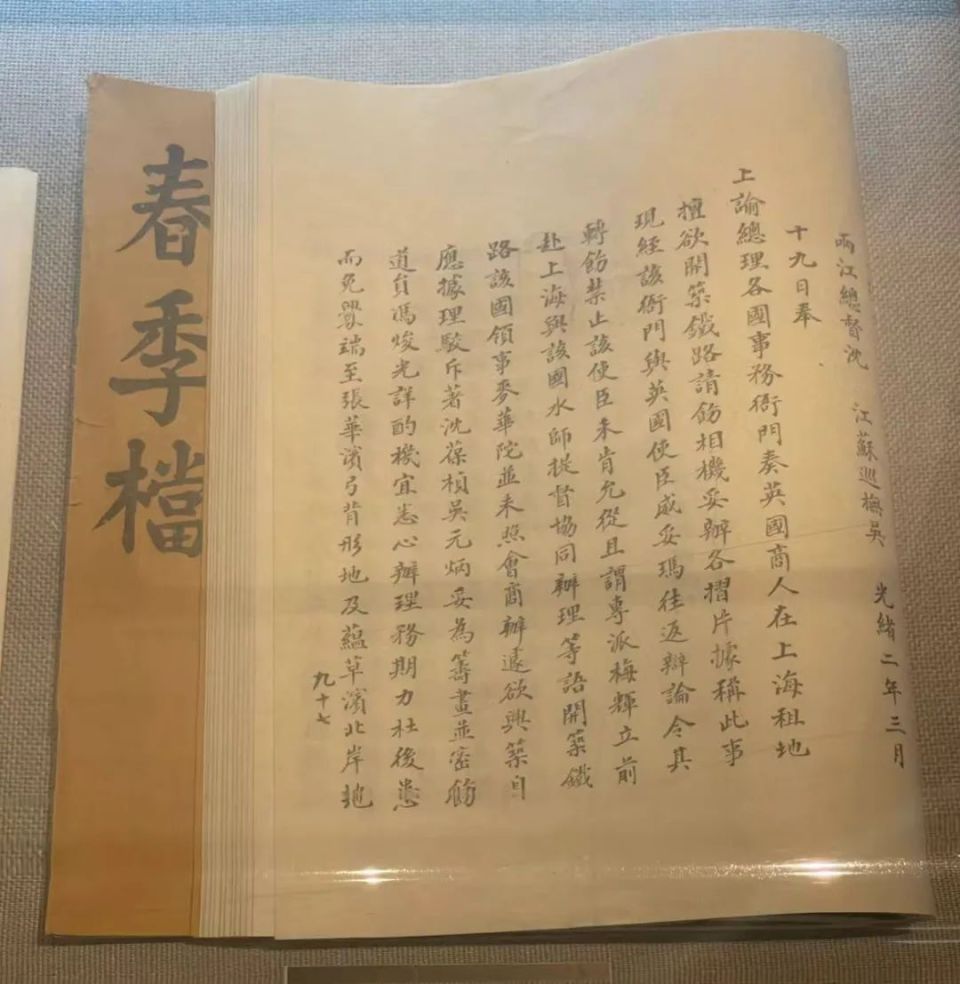 兩江總督沈 江蘇巡撫吳 光緒二年三月
十九日奉
上諭總理各國事務衙門奏英國商人在上海租地
擅欲開築鐵路請飭相機妥辦各摺片據稱此事
現經該衙門與英國使臣威妥瑪往返辯論令其
轉飭禁止該使臣未肯允從且謂專派梅輝立前
赴上海與該國水師提督協同辦理等語開築鐵
路該國領事麥華陀並未照會商辦遽欲興築自
應據理駁斥著沈葆楨吳元炳妥為籌畫並密飭
道員馮焌光詳酌機宜悉心辦理務期力杜後患
而免釁端至張華濱弓背形地及蘊草濱北岸地
九十七
春季檔